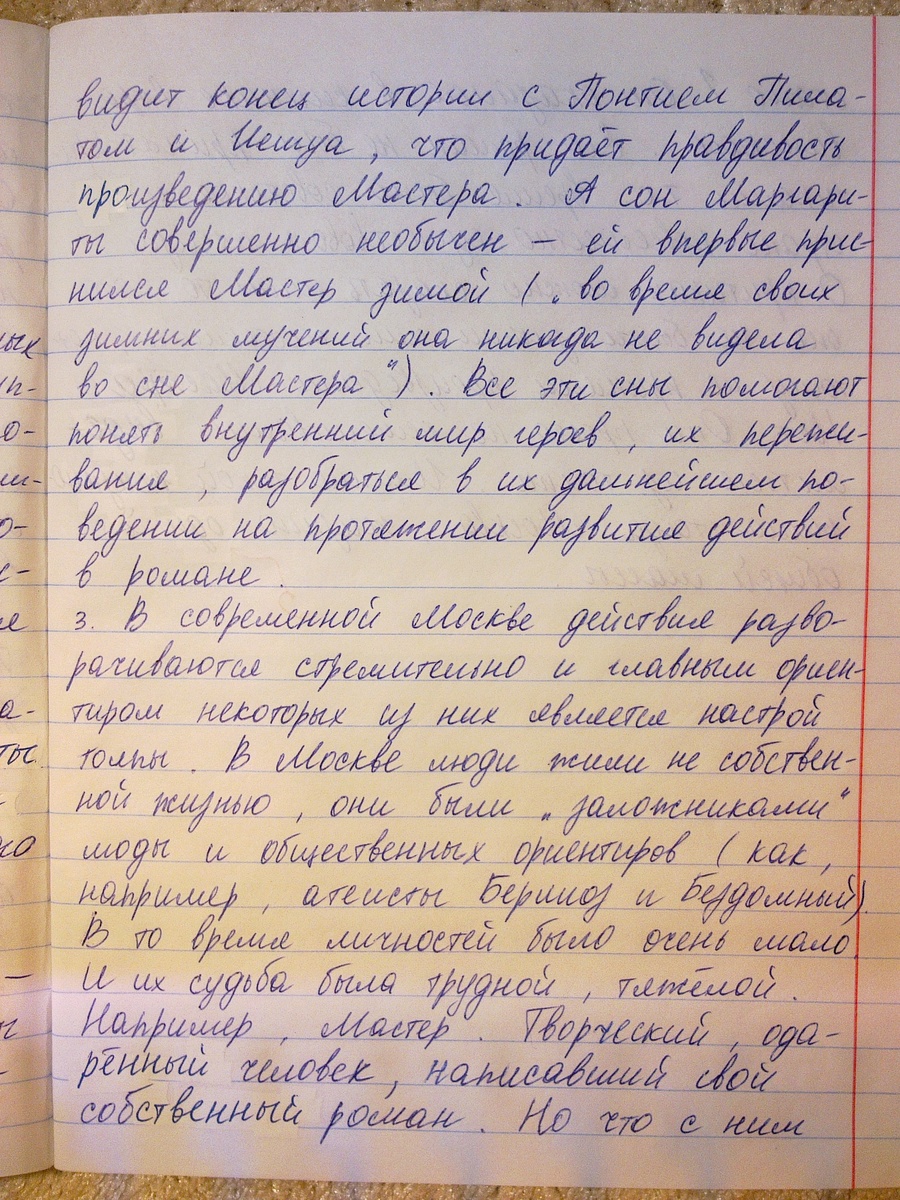 видит конец истории с Понтием Пила-
том и Иешуа, что придаёт правдивость
произведению Мастера. А сон Маргари-
ты совершенно необычен – ей впервые прис-
нился Мастер зимой („во время своих
зимних мучений она никогда не видела
во сне Мастера“). Все эти сны помогают
понять внутренний мир героев, их пережи-
вания, разобраться в их дальнейшем по-
ведении на протяжении развития действий
в романе.
3. В современной Москве действия разво-
рачиваются стремительно и главным ориен-
тиром некоторых из них является настрой
толпы. В Москве люди жили не собствен-
ной жизнью, они были „заложниками“
моды и общественных ориентиров (как,
например, атеисты Берлиоз и Бездомный).
В то время личностей было очень мало.
И их судьба была трудной, тяжёлой.
Например, Мастер. Творческий, ода-
рённый человек, написавший свой
собственный роман. Но что с ним